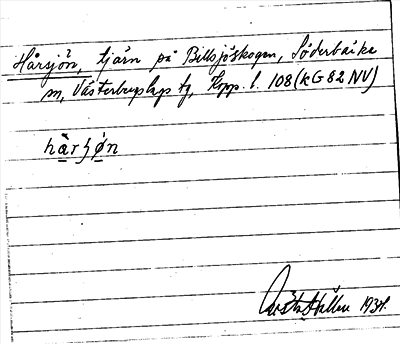 Hårsjön, tjärn på Billsjöskogen, Söderbärke
sn, Västerbergslags tg, Kopp. l. 108 (kG 82 NV)
hà̱rʃø̱n
1934.